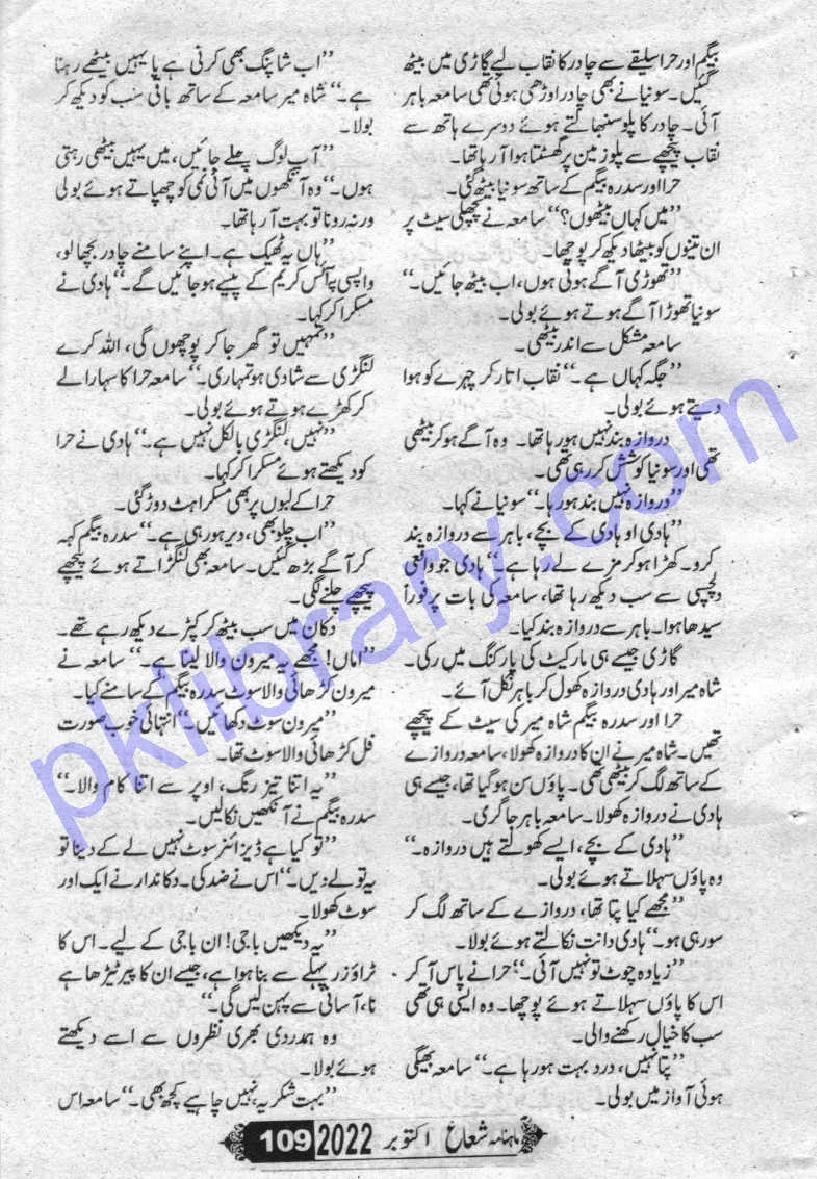 بیگم اور حرا سلیقے سے چادر کا نقاب لیے گاڑی میں بیٹھ
گئیں۔ سونیا نے بھی چادر اوڑھی ہوئی تھی سامعہ باہر
آئی۔ چادر کا پلو سنبھالتے ہوئے دوسرے ہاتھ سے
نقاب پیچھے سے پلو زمین پر گھسٹتا ہوا آ رہا تھا۔
حرا اور سدرہ بیگم کے ساتھ سونیا بیٹھ گئی۔
”میں کہاں بیٹھوں؟“ سامعہ نے پچھلی سیٹ پر
ان تینوں کو بیٹھا دیکھ کر پوچھا۔
”تھوڑی آگے ہوتی ہوں، اب بیٹھ جائیں۔“
سونیا تھوڑا آگے ہوتے ہوئے بولی۔
سامعہ مشکل سے اندر بیٹھی۔
”جگہ کہاں ہے۔“ نقاب اتار کر چہرے کو ہوا
دیتے ہوئے بولی۔
دروازہ بند نہیں ہو رہا تھا۔ وہ آگے ہو کر بیٹھی
تھی اور سونیا کوشش کر رہی تھی۔
”دروازہ نہیں بند ہو رہا۔“ سونیا نے کہا۔
”ہادی او ہادی کے بچے، باہر سے دروازہ بند
کرو۔ کھڑا ہو کر مزے لے رہا ہے۔“ ہادی جو واقعی
دلچسپی سے سب دیکھ رہا تھا، سامعہ کی بات پر فوراً
سیدھا ہوا۔ باہر سے دروازہ بند کیا۔
گاڑی جیسے ہی مارکیٹ کی پارکنگ میں رکی۔
شاہ میر اور ہادی دروازہ کھول کر باہر نکل آئے۔
حرا اور سدرہ بیگم شاہ میر کی سیٹ کے پیچھے
تھیں۔ شاہ میر نے ان کا دروازہ کھولا، سامعہ دروازے
کے ساتھ لگ کر بیٹھی تھی۔ پاؤں سن ہو گیا تھا، جیسے ہی
ہادی نے دروازہ کھولا۔ سامعہ باہر جا گری۔
”ہادی کے بچے، ایسے کھولتے ہیں دروازہ۔“
وہ پاؤں سہلاتے ہوئے بولی۔
”مجھے کیا پتا تھا، دروازے کے ساتھ لگ کر
سو رہی ہو۔“ ہادی دانت نکالتے ہوئے بولا۔
”زیادہ چوٹ تو نہیں آئی۔“ حرا نے پاس آ کر
اس کا پاؤں سہلاتے ہوئے پوچھا۔ وہ ایسی ہی تھی
سب کا خیال رکھنے والی۔
”پتا نہیں، درد بہت ہو رہا ہے۔“ سامعہ بھیگی
ہوئی آواز میں بولی۔
”اب شاپنگ بھی کرنی ہے یا یہیں بیٹھے رہنا
ہے۔“ شاہ میر سامعہ کے ساتھ باقی سب کو دیکھ کر
بولا۔
”آپ لوگ چلے جائیں، میں یہیں بیٹھی رہتی
ہوں۔“ وہ آنکھوں میں آئی نمی کو چھپاتے ہوئے بولی
ورنہ رونا تو بہت آ رہا تھا۔
”ہاں یہ ٹھیک ہے۔ اپنے سامنے چادر بچھا لو،
واپسی پر آئس کریم کے پیسے ہو جائیں گے۔“ ہادی نے
مسکرا کر کہا۔
”تمہیں تو گھر جا کر پوچھوں گی، اللہ کرے
لنگڑی سے شادی ہو تمہاری۔“ سامعہ حرا کا سہارا لے
کر کھڑے ہوتے ہوئے بولی۔
”نہیں، لنگڑی بالکل نہیں ہے۔“ ہادی نے حرا
کو دیکھتے ہوئے مسکرا کر کہا۔
حرا کے لبوں پر بھی مسکراہٹ دوڑ گئی۔
”اب چلو بھی، دیر ہو رہی ہے۔“ سدرہ بیگم کہہ
کر آگے بڑھ گئیں۔ سامعہ بھی لنگڑاتے ہوئے پیچھے
پیچھے چلنے لگی۔
دکان میں سب بیٹھ کر کپڑے دیکھ رہے تھے۔
”اماں! مجھے یہ میرون والا لینا ہے۔“ سامعہ نے
میرون کڑھائی والا سوٹ سدرہ بیگم کے سامنے کیا۔
”میرون سوٹ دکھائیں۔“ انتہائی خوب صورت
فل کڑھائی والا سوٹ تھا۔
”یہ اتنا تیز رنگ، اوپر سے اتنا کام والا۔“
سدرہ بیگم نے آنکھیں نکالیں۔
”تو کیا ہے ڈیزائنر سوٹ نہیں لے کے دینا تو
یہ تو لے دیں۔“ اس نے ضد کی۔ دکاندار نے ایک اور
سوٹ کھولا۔
”یہ دیکھیں باجی! ان باجی کے لیے۔ اس کا
ٹراؤزر پہلے سے بنا ہوا ہے، جیسے ان کا پیر ٹیڑھا ہے
نا، آسانی سے پہن لیں گی۔“
وہ ہمدردی بھری نظروں سے اسے دیکھتے
ہوئے بولا۔
”بہت شکریہ، نہیں چاہیے کچھ بھی۔“ سامعہ اس
ماہنامہ شعاع اکتوبر 2022 109
pklibrary.com